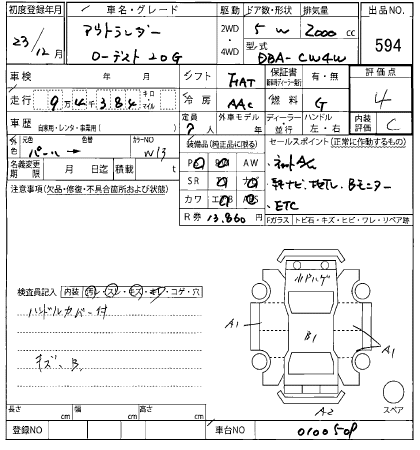 初度登録年月 車名・グレード 駆動 ドア数・形状 排気量 出品NO.
23/12月 アウトランダー 2WD 5 W 2000 cc 594
ローデスト 20G 4WD 型式 DBA-CW4W
車検 年 月 シフト FAT 保証書 有・無 評価点
走行 9万4千384 キロ マイル 冷房 AAC 燃料 G 4
車歴 自家用・レンタ・事業用( ) 定員 7人 外車モデル年 ディーラー・並行 ハンドル 左・右 内装評価 C
色 元色 パール 色替 カラーNO W13 装備品(純正品に限る) セールスポイント(正常に動作するもの)
名義変更期限 月 日迄 積載 t
AW
SR
注意事項(欠品・修復・不具合箇所および状態) カワ
・ETC
R券 13,860円 Fガラス トビ石・キズ・ヒビ・ワレ・リペア跡
検査員記入 内装 汚レ・スレ・キズ・キレ・コゲ・穴
ハンドルカバー付
A1 B1 A1
キズ、B
スペア
A2
長さ cm 幅 cm 高さ cm
登録NO 車台NO